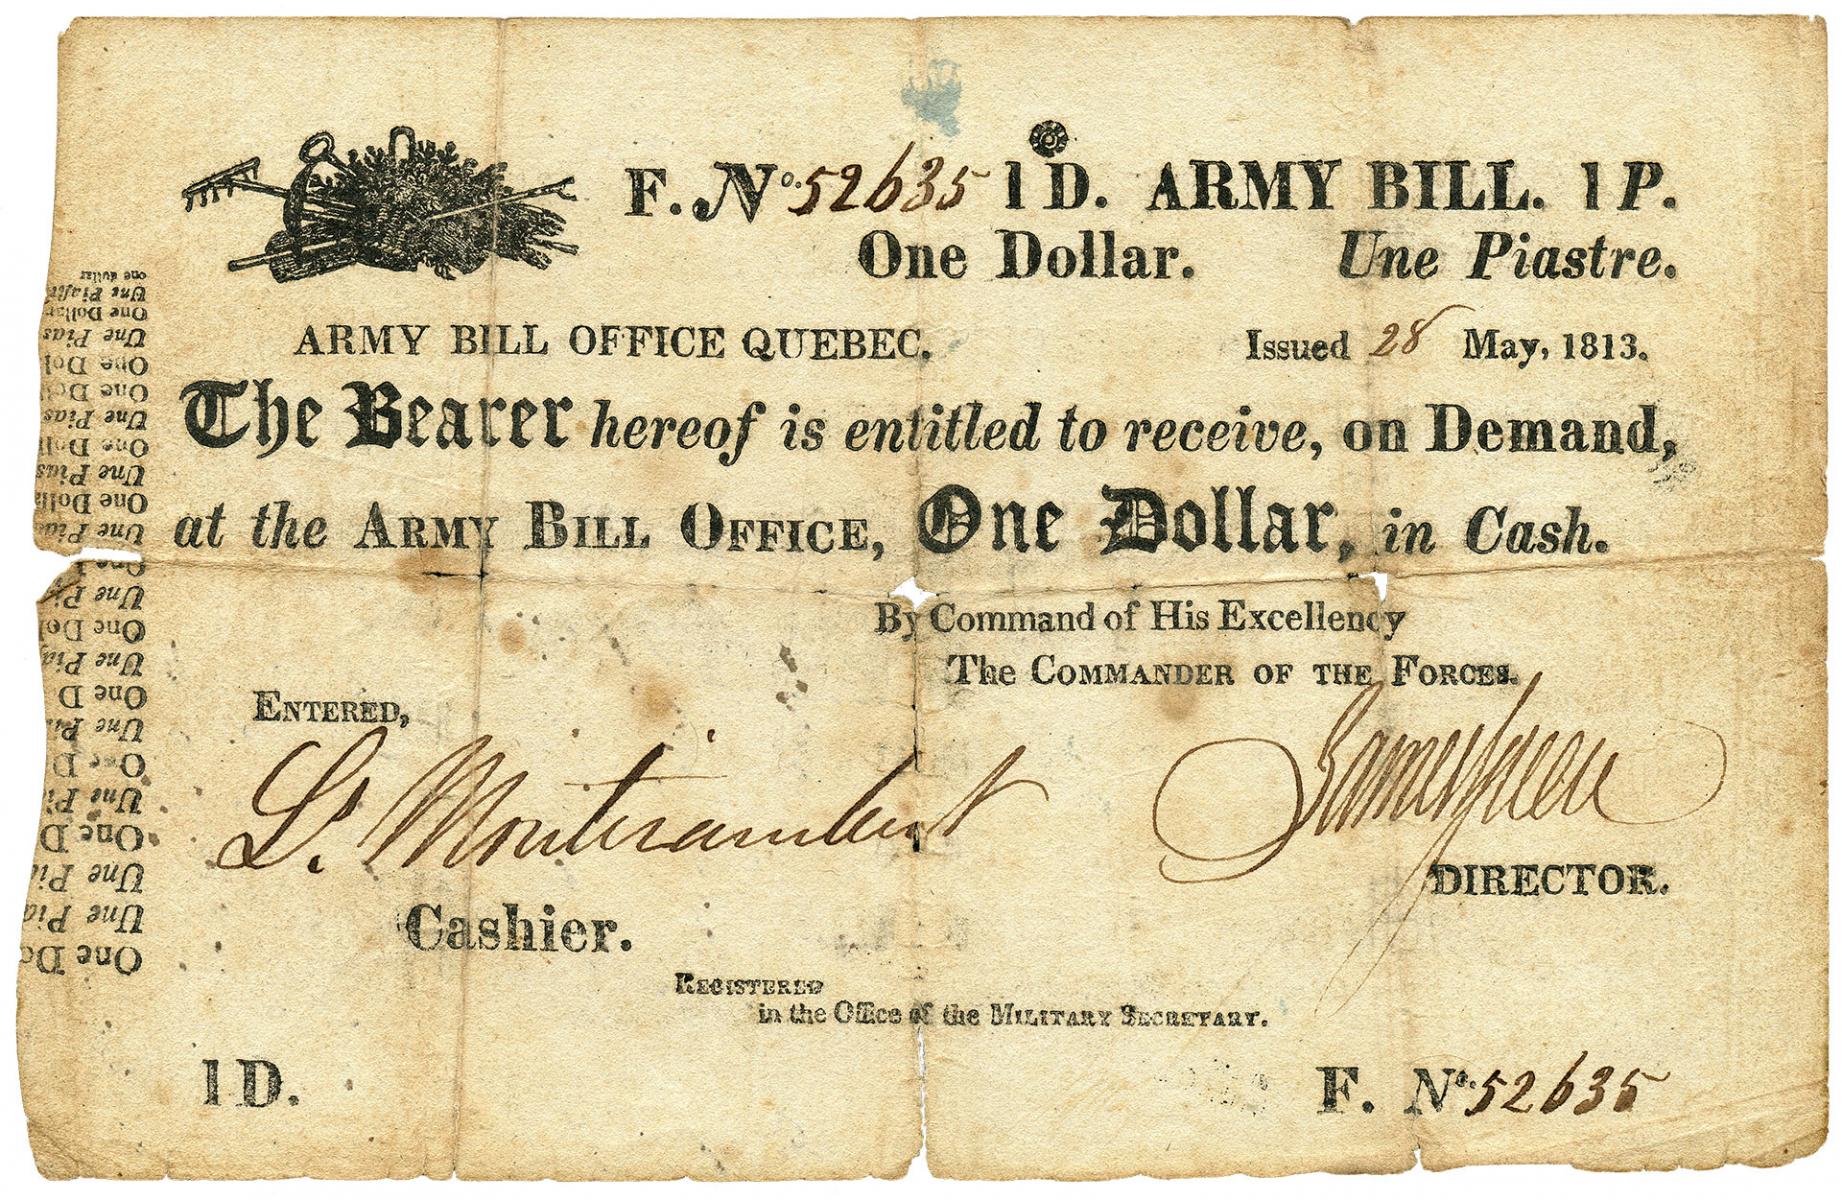 F. No. 52635 1 D. ARMY BILL. 1 P.
One Dollar. Une Piastre.
ARMY BILL OFFICE QUEBEC. Issued 28 May, 1813.
The Bearer hereof is entitled to receive, on Demand,
at the ARMY BILL OFFICE, One Dollar, in Cash.
By Command of His Excellency
The COMMANDER OF THE FORCES.
ENTERED,
Ls. Montizambert
James Green
DIRECTOR.
Cashier.
REGISTERED
in the Office of the MILITARY SECRETARY.
1 D.
F. No. 52635
One Do
Une Pia
Une Pi
One D
Une Pi
One D
Une Pi
One D
Une Pia
One Dol
Une Pi
One
Une Pias
One Dolla
Une Pias
One Doll
Une Pias
One Dol
One Dol
Une Pias
One Dollar
Une Piastr
one dollar